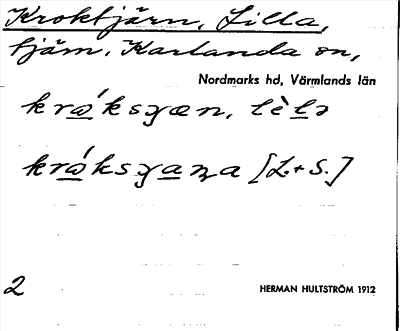 Kroktjärn, Lilla,
tjärn, Karlanda sn,
Nordmarks hd, Värmlands län
krώksɣæn, lὲlə
krώksɣaɳa [L.+S.]
2
HERMAN HULTSTRÖM 1912